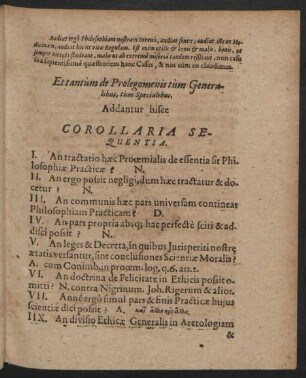 Audiat ergò Philosophiam nostram juvenis, audiat senex; audiat idem Medicinam, audiat his ut vitæ Regulam. Est enim utilis & bonis & malis, bonis, ut
semper virtuti studeant, malis ut ab extremâ miseriâ tandem resiliant.
sapientissimè quæsitionem hanc
Et tantum de Prolegomenis tùm Generalibus, tùm Specialibus.
Addantur hisce
COROLLARIA SEQUENTIA.
I. An tractatio hæc Proœmialis de essentia sit Philosophiæ Practicæ? N.
II. An ergo possit negligi, dum hæc tractatur & docetur? N.
III. An communis hæc pars universam contineat
Philosophiam Practicam? D.
IV. An pars propria absq; hac perfectè sciri & addisci possit? N.
V. An leges & Decreta, in quibus Jurisperiti nostræ
ætatis versantur, sint conclusiones Scientiæ Moralis?
A. cum Conimb. in proœm. log. q. 6. art. 2.
VI. An doctrina de Felicitate in Ethicis possit omitti? N. contra Nigrinum. Joh. Rigerum & alios.
VII. Anné ergò simul pars & finis Practicæ hujus
scientiæ dici possit? A.
IIX. An divisio Ethicæ Generalis in Aretologiam
&